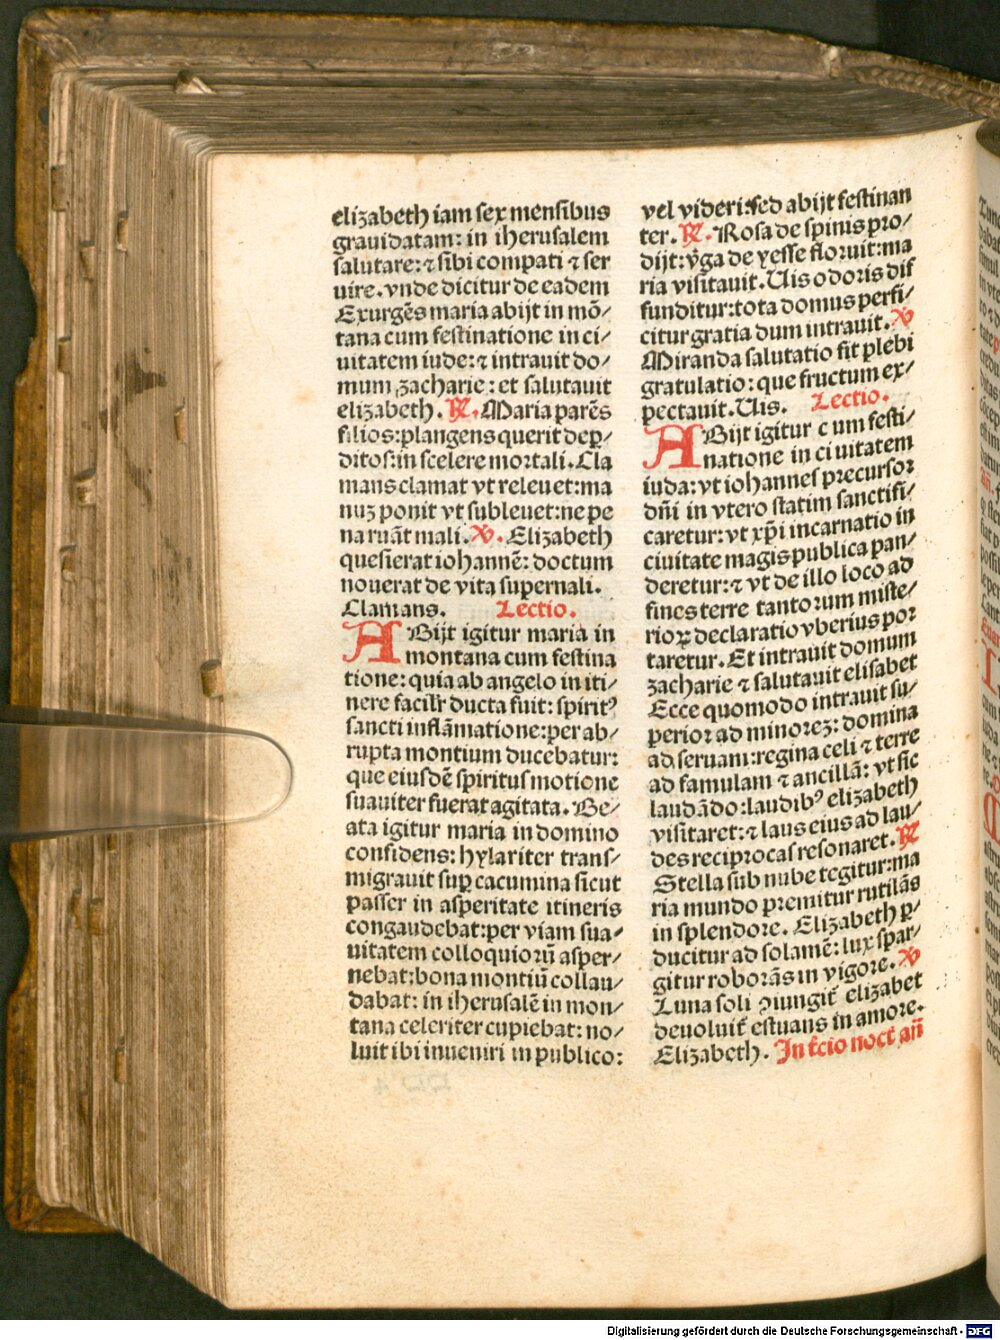 elizabeth iam sex mensibus
grauidatam: in iherusalem
salutare: ⁊ sibi compati ⁊ ser
uire. vnde dicitur de eadem
Exurgẽs maria abijt in mõ/
tana cum festinatione in ci/
uitatem iude: ⁊ intrauit do/
mum zacharie: et salutauit
elizabeth. ℟. Maria parẽs
filios: plangens querit deper/
ditos: in scelere mortali. Cla
mans clamat vt releuet: ma
nuʒ ponit vt subleuet: ne pe
na ruãt mali. ℣. Elizabeth
quesierat iohannẽ: doctum
nouerat de vita supernali.
Clamans. Lectio.
ABijt igitur maria in
montana cum festina
tione: quia ab angelo in iti/
nere facilr̃ ducta fuit: spiritꝰ
sancti inflãmatione: per ab/
rupta montium ducebatur:
que eiusdẽ spiritus motione
suauiter fuerat agitata. Be/
ata igitur maria in domino
confidens: hylariter trans/
migrauit sup̱ cacumina sicut
passer in asperitate itineris
congaudebat: per viam sua/
uitatem colloquiorũ asper/
nebat: bona montiũ collau/
dabat: in iherusalẽ in mon/
tana celeriter cupiebat: no/
luit ibi inueniri in publico:
vel videri: sed abijt festinan
ter. ℟. Rosa de spinis pro/
dijt: v̓ga de yesse floruit: ma
ria visitauit. Uis odoris dif
funditur: tota domus perfi/
citur gratia dum intrauit. ℣
Miranda salutatio fit plebi
gratulatio: que fructum ex/
pectauit. Uis. Lectio.
ABijt igitur cum festi/
natione in ciuitatem
iuda: vt iohannes precursor
dñi in vtero statim sanctifi/
caretur: vt xp̃i incarnatio in
ciuitate magis publica pan/
deretur: ⁊ vt de illo loco ad
fines terre tantorum miste/
rioꝝ declaratio vberius por
taretur. Et intrauit domum
zacharie ⁊ salutauit elisabet
Ecce quomodo intrauit su/
perior ad minoreʒ: domina
ad seruam: regina celi ⁊ terre
ad famulam ⁊ ancillã: vt sic
laudãdo: laudibꝰ elizabeth
visitaret: ⁊ laus eius ad lau/
des reciprocas resonaret. ℟
Stella sub nube tegitur: ma
ria mundo premitur rutilãs
in splendore. Elizabeth p̱/
ducitur ad solamẽ: lux spar/
gitur roborãs in vigore. ℣
Luna soli ꝯiungit̃ elizabet
deuoluit̃ estuans in amore.
Elizabeth. In t̃cio noct̃ añ
Digitalisierung gefördert durch die Deutsche Forschungsgemeinschaft - DFG